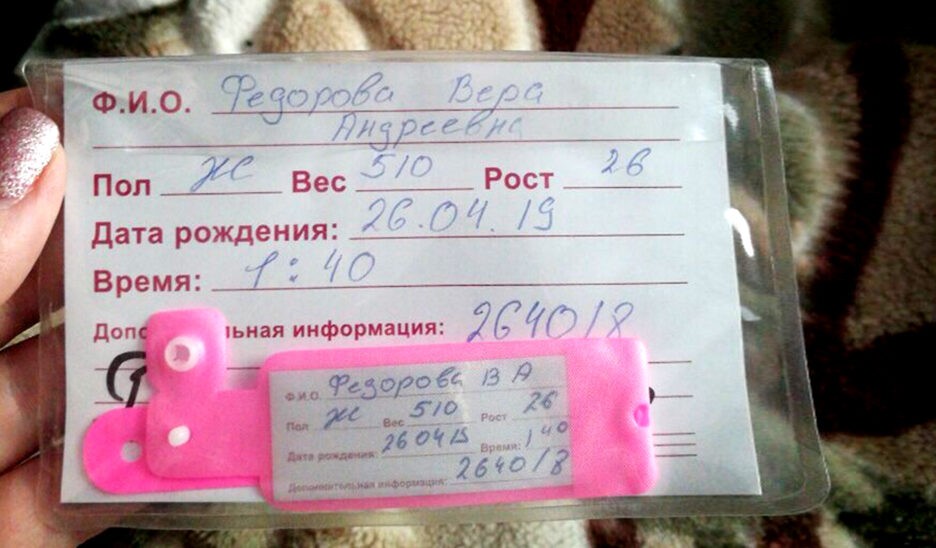 Ф.И.О. Федорова Вера
Андреевна
Пол жс Вес 510 Рост 26
Дата рождения: 26.04.19
Время: 1:40
Дополнительная информация: 2640/8
Ф.И.О. Федорова В А
Пол жс Вес 510 Рост 26
Дата рождения: 260419 Время: 1 40
Дополнительная информация: 2640/8